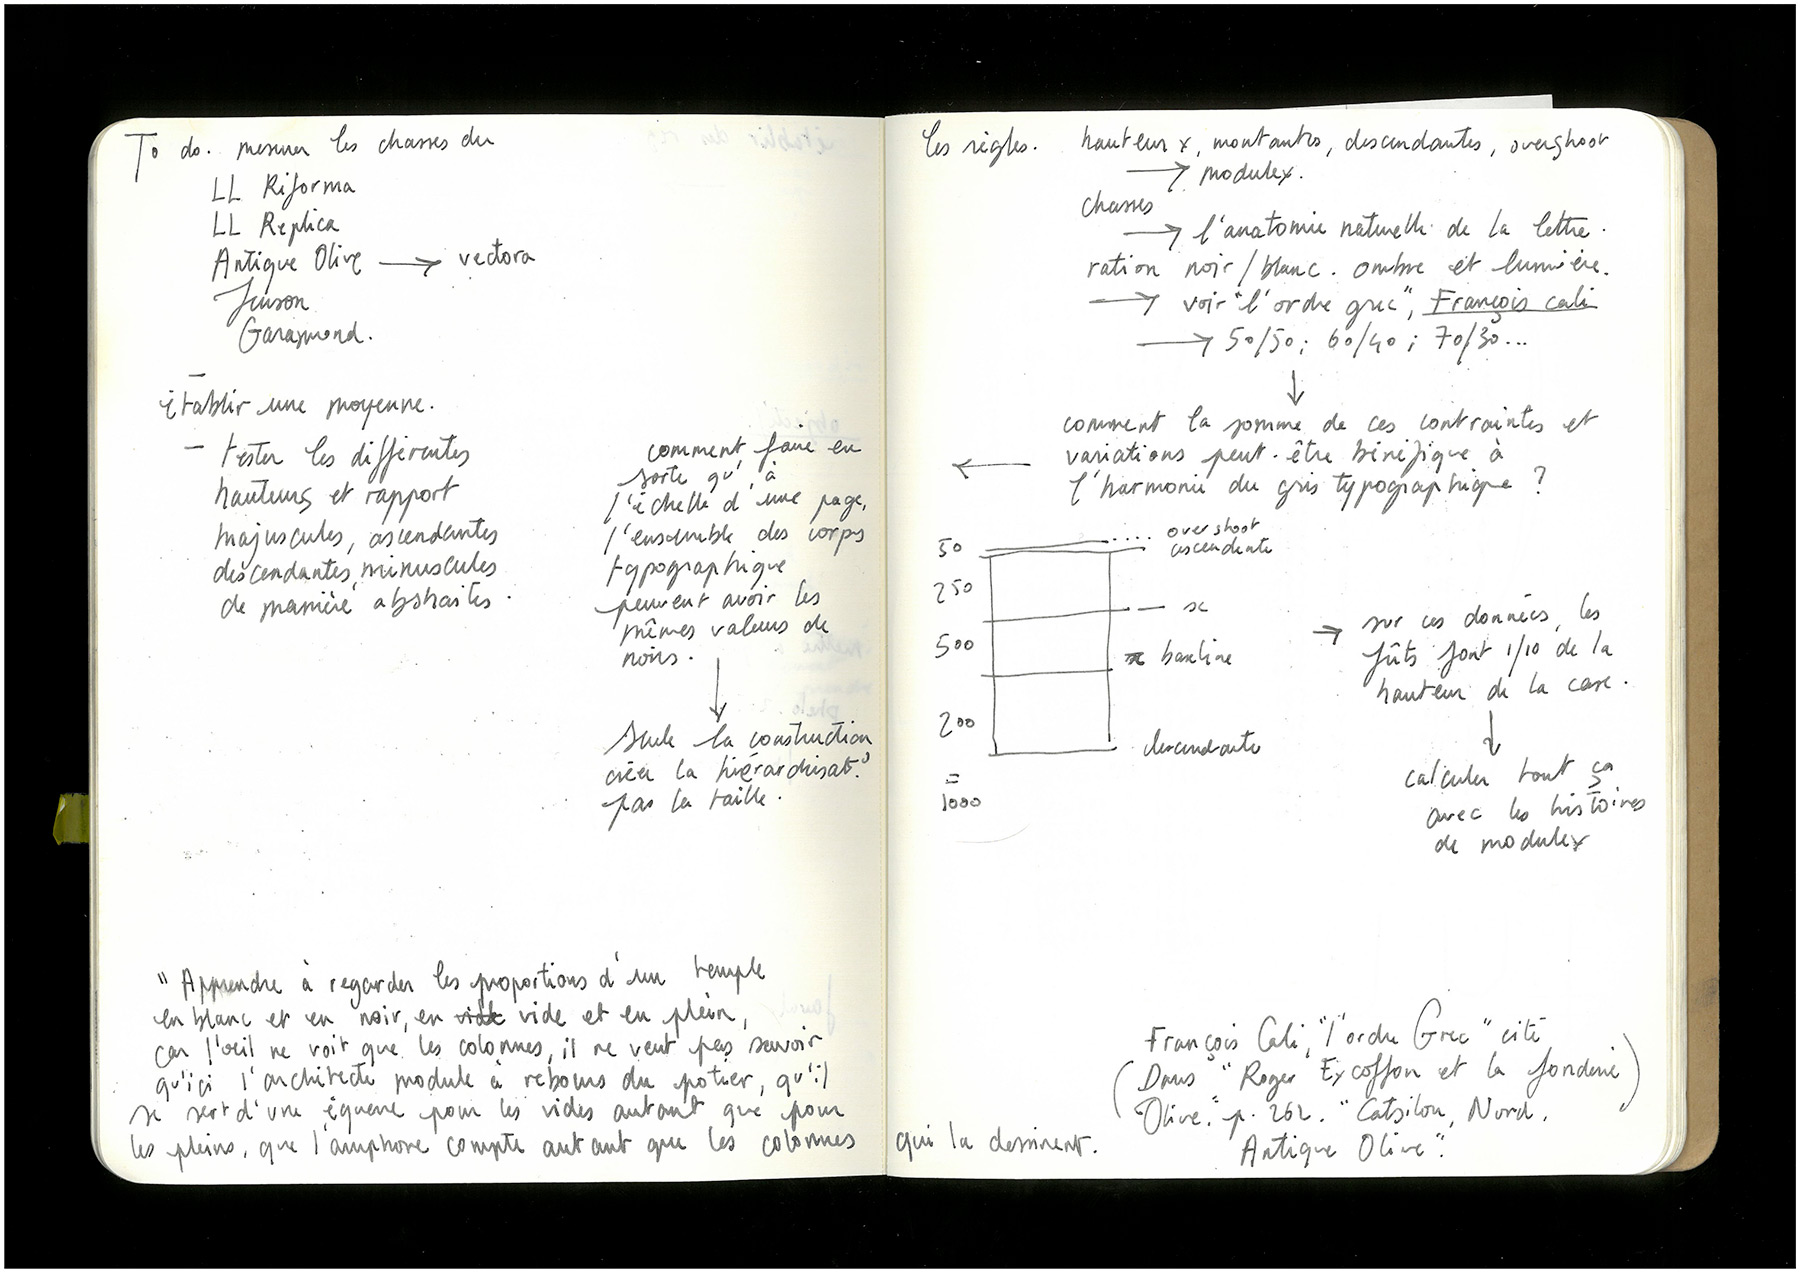 To do. mesurer les chasses du
LL Riforma
LL Replica
Antique Olive → vectora
Jenson
Garaymond.
–
établir une moyenne.
– tester les différentes
hauteurs et rapport
majuscules, ascendantes
descendantes, minuscules
de manière abstraites.
comment faire en
sorte qu', à
l'échelle d'une page,
l'ensemble des corps
typographique
peuvent avoir les
mêmes valeurs de
noirs.
seule la construction
créer la hiérarchisat°
pas la taille.
" Apprendre à regarder les proportions d'un temple
en blanc et en noir, en vide et en plein,
car l'oeil ne voit que les colonnes, il ne veut pas savoir
qu'ici l'architecte module à rebours du potier, qu'il
se sert d'une équerre pour les vides autant que pour
les pleins, que l'amphore compte autant que les colonnes qui la dessinent.
les règles. hauteur x, montantes, descendantes, overshoot
→ modulex.
chasses
→ l'anatomie naturelle de la lettre.
ration noir/blanc. ombre et lumière.
→ voir "l'ordre grec", François cali
→ 50/50; 60/40; 70/30...
comment la somme de ces contraintes et
variations peut-être bénéfique à
l'harmonie du gris typographique ?
50 .... overshoot
ascendante
250
— x
500
baseline
200
descendante
=
1000
→ sur ces données, les
fûts font 1/10 de la
hauteur de la case.
calculer tout ça
avec les histoires
de modulex
François Cali, "l'ordre Grec" cité
(Dans "Roger Excoffon et la fonderie
Olive." p. 262. "Catsilou, Nord,
Antique Olive".)